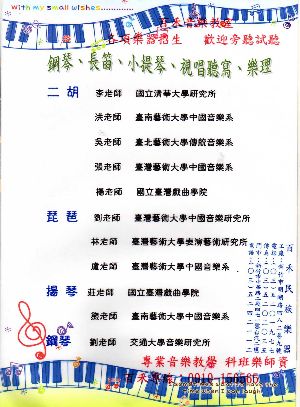 With my small wishes......
百禾音樂教室
各項樂器招生 歡迎旁聽試聽
鋼琴、長笛、小提琴、視唱聽寫、樂理
二胡 李老師 國立清華大學研究所
洪老師 臺南藝術大學中國音樂系
吳老師 臺北藝術大學傳統音樂系
張老師 臺灣藝術大學中國音樂系
楊老師 國立臺灣戲曲學院
琵琶 劉老師 臺灣藝術大學中國音樂研究所
林老師 臺灣藝術大學表演藝術研究所
盧老師 臺灣藝術大學中國音樂系
揚琴 莊老師 國立臺灣戲曲學院
熊老師 臺南藝術大學中國音樂系
鋼琴 劉老師 交通大學音樂研究所
百禾民族樂器
專業音樂教學 科班樂師資